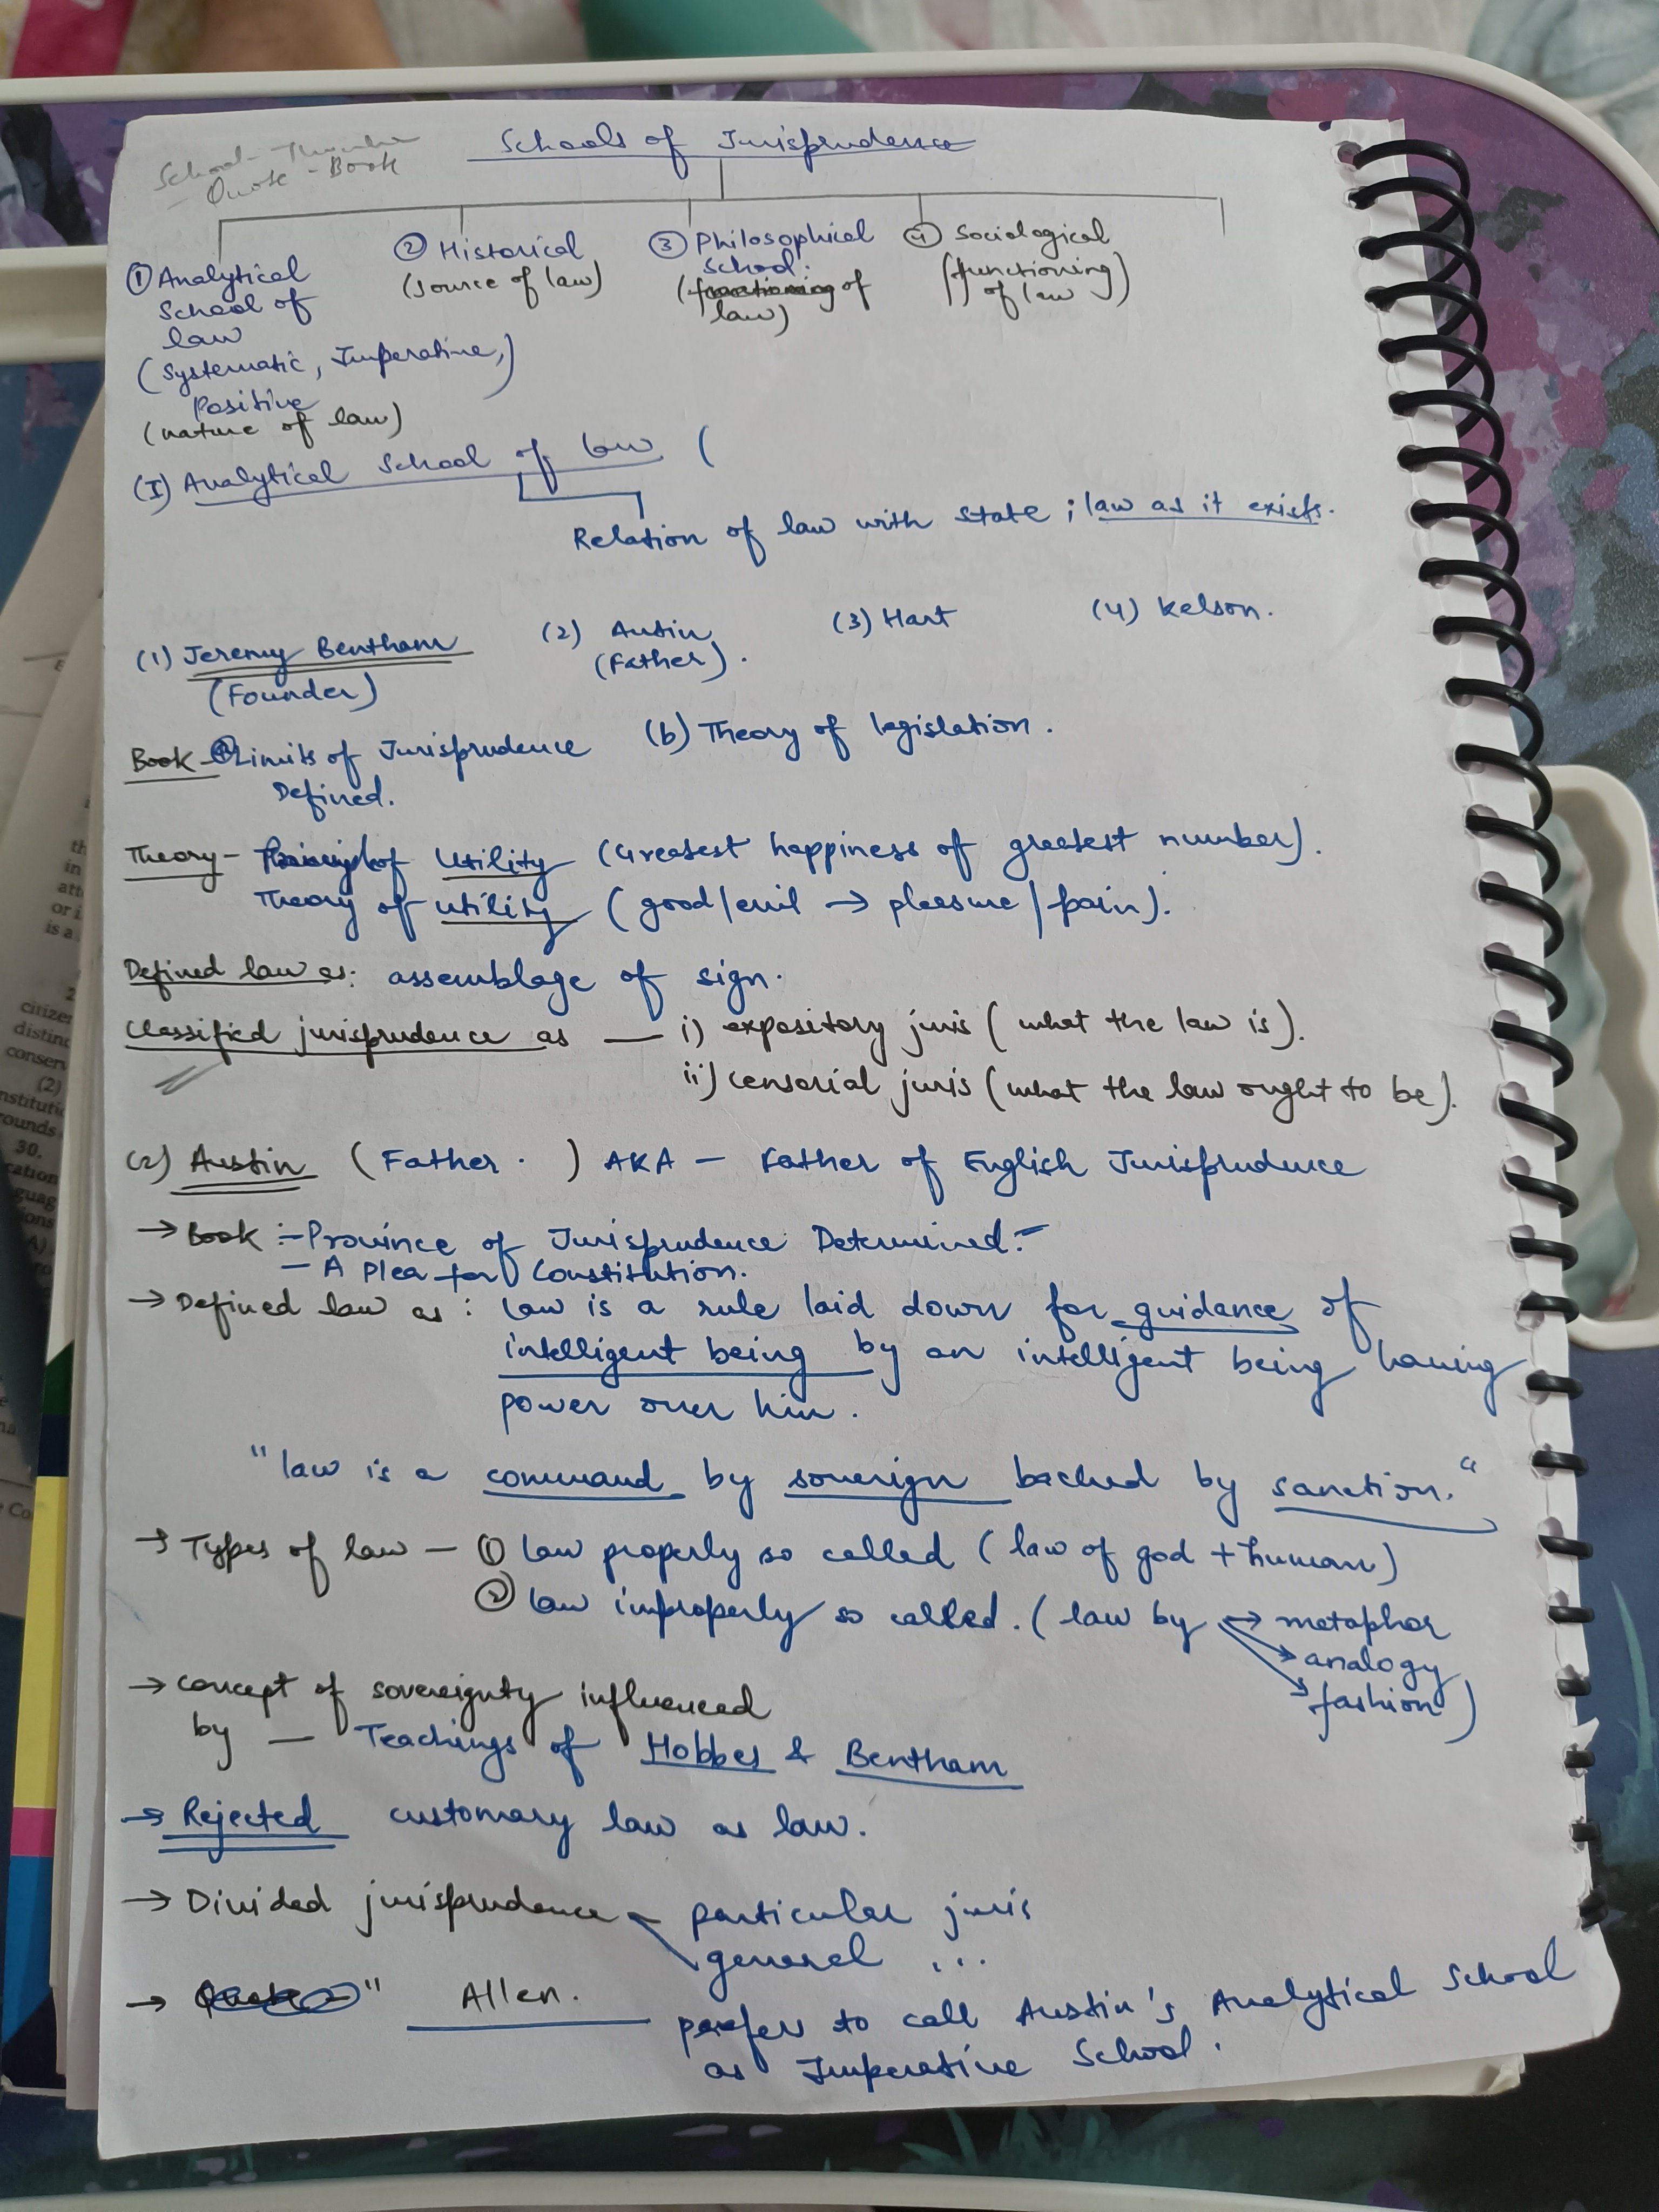 School - Thinker
- Quote - Book
Schools of Jurisprudence
① Analytical
School of
law
(Systematic, Imperative,)
Positive
(nature of law)
② Historical
(source of law)
③ Philosophical
School.
(functioning of
law)
④ Sociological
(functioning
of law)
(I) Analytical School of law (
Relation of law with state ; law as it exists.
(1) Jeremy Bentham
(Founder)
(2) Austin
(Father).
(3) Hart
(4) Kelson.
Book - ⓐ Limits of Jurisprudence
Defined.
(b) Theory of legislation.
Theory - Principl of Utility (Greatest happiness of greatest number).
Theory of utility (good/evil → pleasure/pain).
Defined law as: assemblage of sign.
Classified jurisprudence as — i) expository juris (what the law is).
ii) censorial juris (what the law ought to be).
(2) Austin (Father . ) AKA - Father of English Jurisprudence
→ Book :- Province of Jurisprudence Determined.-
- A Plea for Constitution.
→ Defined law as : law is a rule laid down for guidance of
intelligent being by an intelligent being having
power over him.
"law is a command by soverign backed by sanction."
→ Types of law - ① law properly so called (law of god + human)
② law improperly so called. (law by → metaphor
→ analogy
→ fashion)
→ concept of sovereignty influenced
by - Teachings of Hobbes & Bentham
→ Rejected customary law as law.
→ Divided jurisprudence - particular juris
general ...
→ " Allen. prefers to call Austin's Analytical School
as Imperative School.